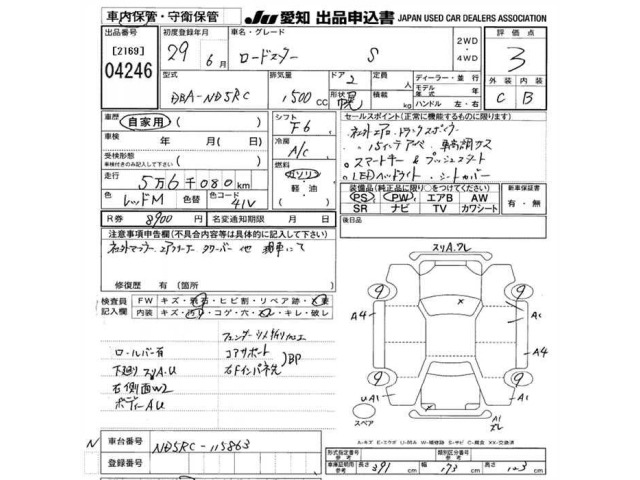 車内保管・守衛保管 JU 愛知 出品申込書 JAPAN USED CAR DEALERS ASSOCIATION
出品番号 初度登録年月 車名・グレード 2WD・4WD 評価点
[2169] 29年 6月 ロードスター S 3
04246
型式 排気量 ドア 定員 ディーラー・並行 外装 内装
DBA-ND5RC 1500cc 2 人 モデル年式 年 C B
形状 幌 積載 kg ハンドル 左・右
車歴 自家用( ) シフト F6 セールスポイント(正常に機能するものに限ります)
車検 年 月 日( ) 冷房 A/C 社外エアロ・トランクスポイラー
受検形態 ( ) 燃料 ガソリン 軽・油 ・スマートキー&プッシュスタート
車検付きのみ記入して下さい
走行 5万6千080km ・LEDヘッドライト ・シートカバー
色 レッドM 色替 色コード 41V 装備品(純正品に限り○をつけてください) 新車保証書
PS PW エアB AW 有・無
SR ナビ TV カワシート
R券 8900円 名変通知期限 月 日 後日品
注意事項申告欄(不具合内容等は具体的に記入して下さい)
社外マフラー エアクリーナー タワーバー 他
修復歴 有(箇所 )
検査員記入欄 FW キズ・飛石・ヒビ割・リペア跡・
内装 キズ・汚れ・コゲ・穴・スレ・キレ・破レ
ロールバー有 コアサポート BP
下廻りスリA.U 右Fインパネ先
右側面W2
ボディーAU
スリA.クレ
9 9
A4 A1
A4 A2
9 9
UA1 A1
スレ
スペア
A-キズ E-エクボ U-凹み W-補修跡 S-サビ C-腐食 XX-交換済
N 車台番号 ND5RC-115863
登録番号
形式指定番号 参考 類別区分番号 参考
車庫証明用 参考 長さ 391cm 幅 173cm 高さ 123cm